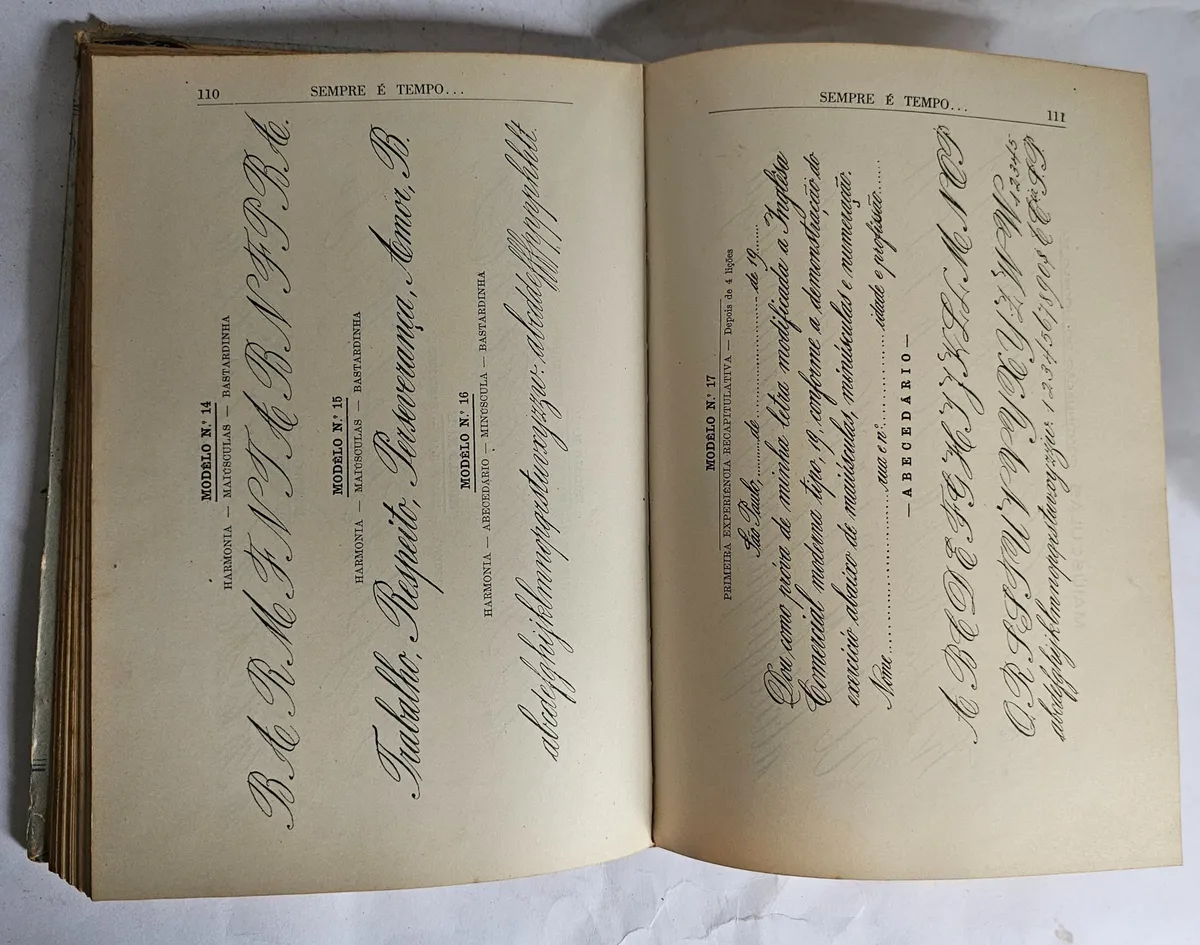 110
SEMPRE É TEMPO...
MODÊLO N.º 14
HARMONIA — MAIÚSCULAS — BASTARDINHA
B A R M F N T A B N F P R A.
MODÊLO N.º 15
HARMONIA — MAIÚSCULAS — BASTARDINHA
Trabalho, Respeito, Perseverança, Amor, B.
MODÊLO N.º 16
HARMONIA — ABECEDÁRIO — MINÚSCULA — BASTARDINHA
abcdefghijklmnopqrstuvxyzzw.
SEMPRE É TEMPO...
111
MODÊLO N.º 17
PRIMEIRA EXPERIÊNCIA RECAPITULATIVA — Depois de 4 lições
São Paulo, ........ de ........................ de 19.......
Dou como prova de minha letra modificada a Inglêsa
Comercial moderna tipo, 19, conforme a demonstração do
exercício abaixo de maiúsculas, minúsculas e numeração.
Nome ........................ rua e nº. ........................ idade e profissão .......
— ABECEDÁRIO —
A B C D E F G H I J K L L M N O P
Q R S
abcdefghijklmnopqrstuvxyzzw. 1234567890